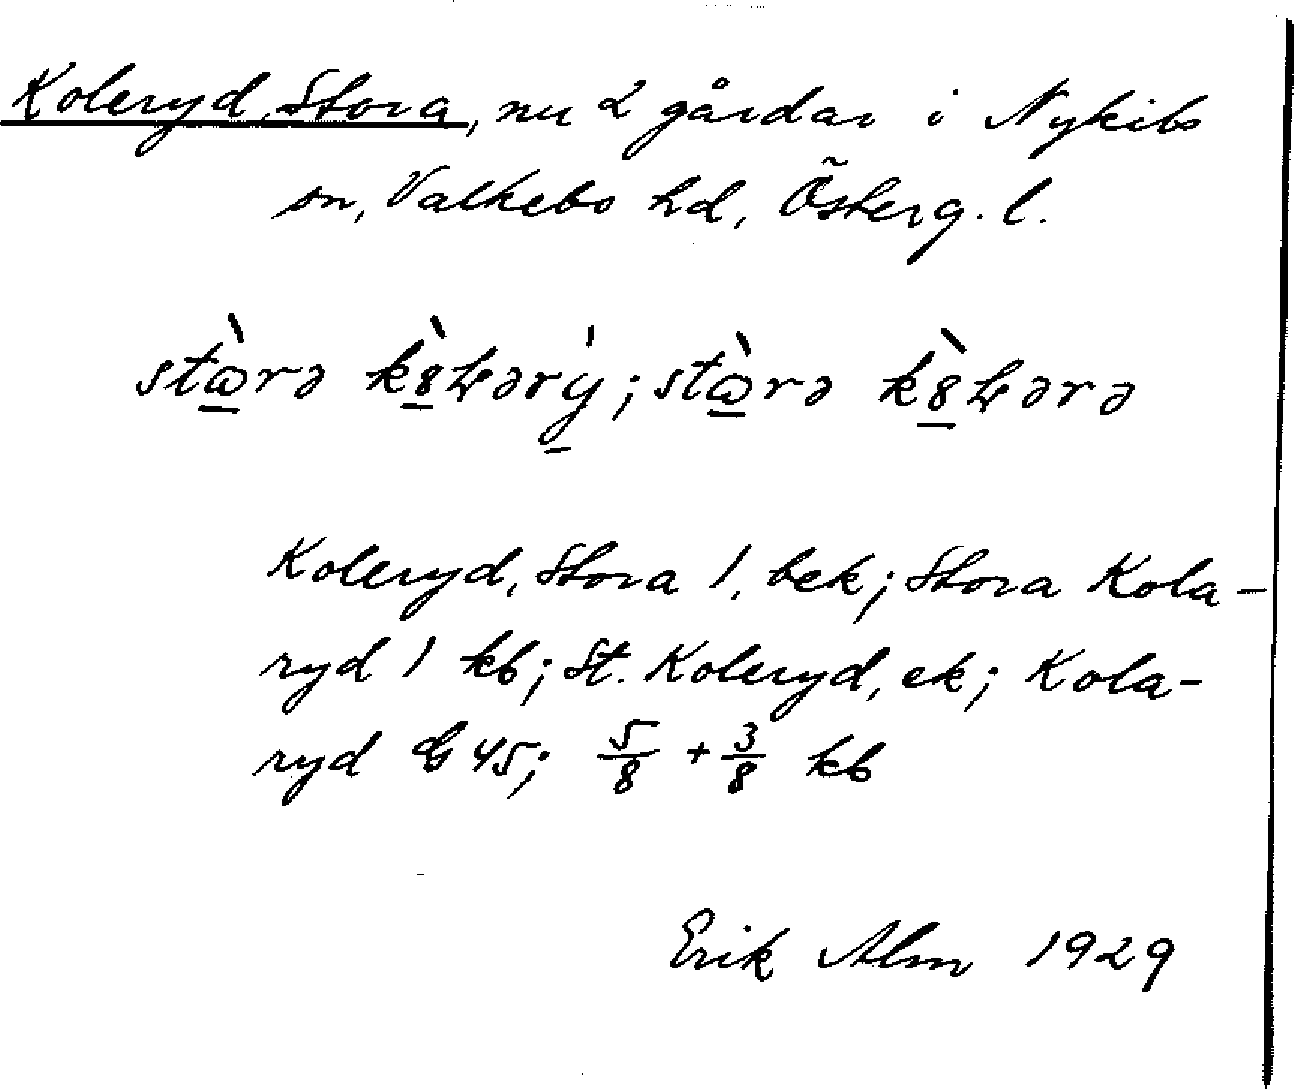 Koleryd, Stora, nu 2 gårdar i Nykils
sn, Valkebo hd, Österg. l.
stɷ̀rə kȣ̀ɬərý; stɷ̀rə kȣ̀ɬərə
Koleryd, Stora 1, bek; Stora Kola-
ryd 1 kb; St. Koleryd, ek; Kola-
ryd G 45; 5/8 + 3/8 kb
Erik Alm 1929